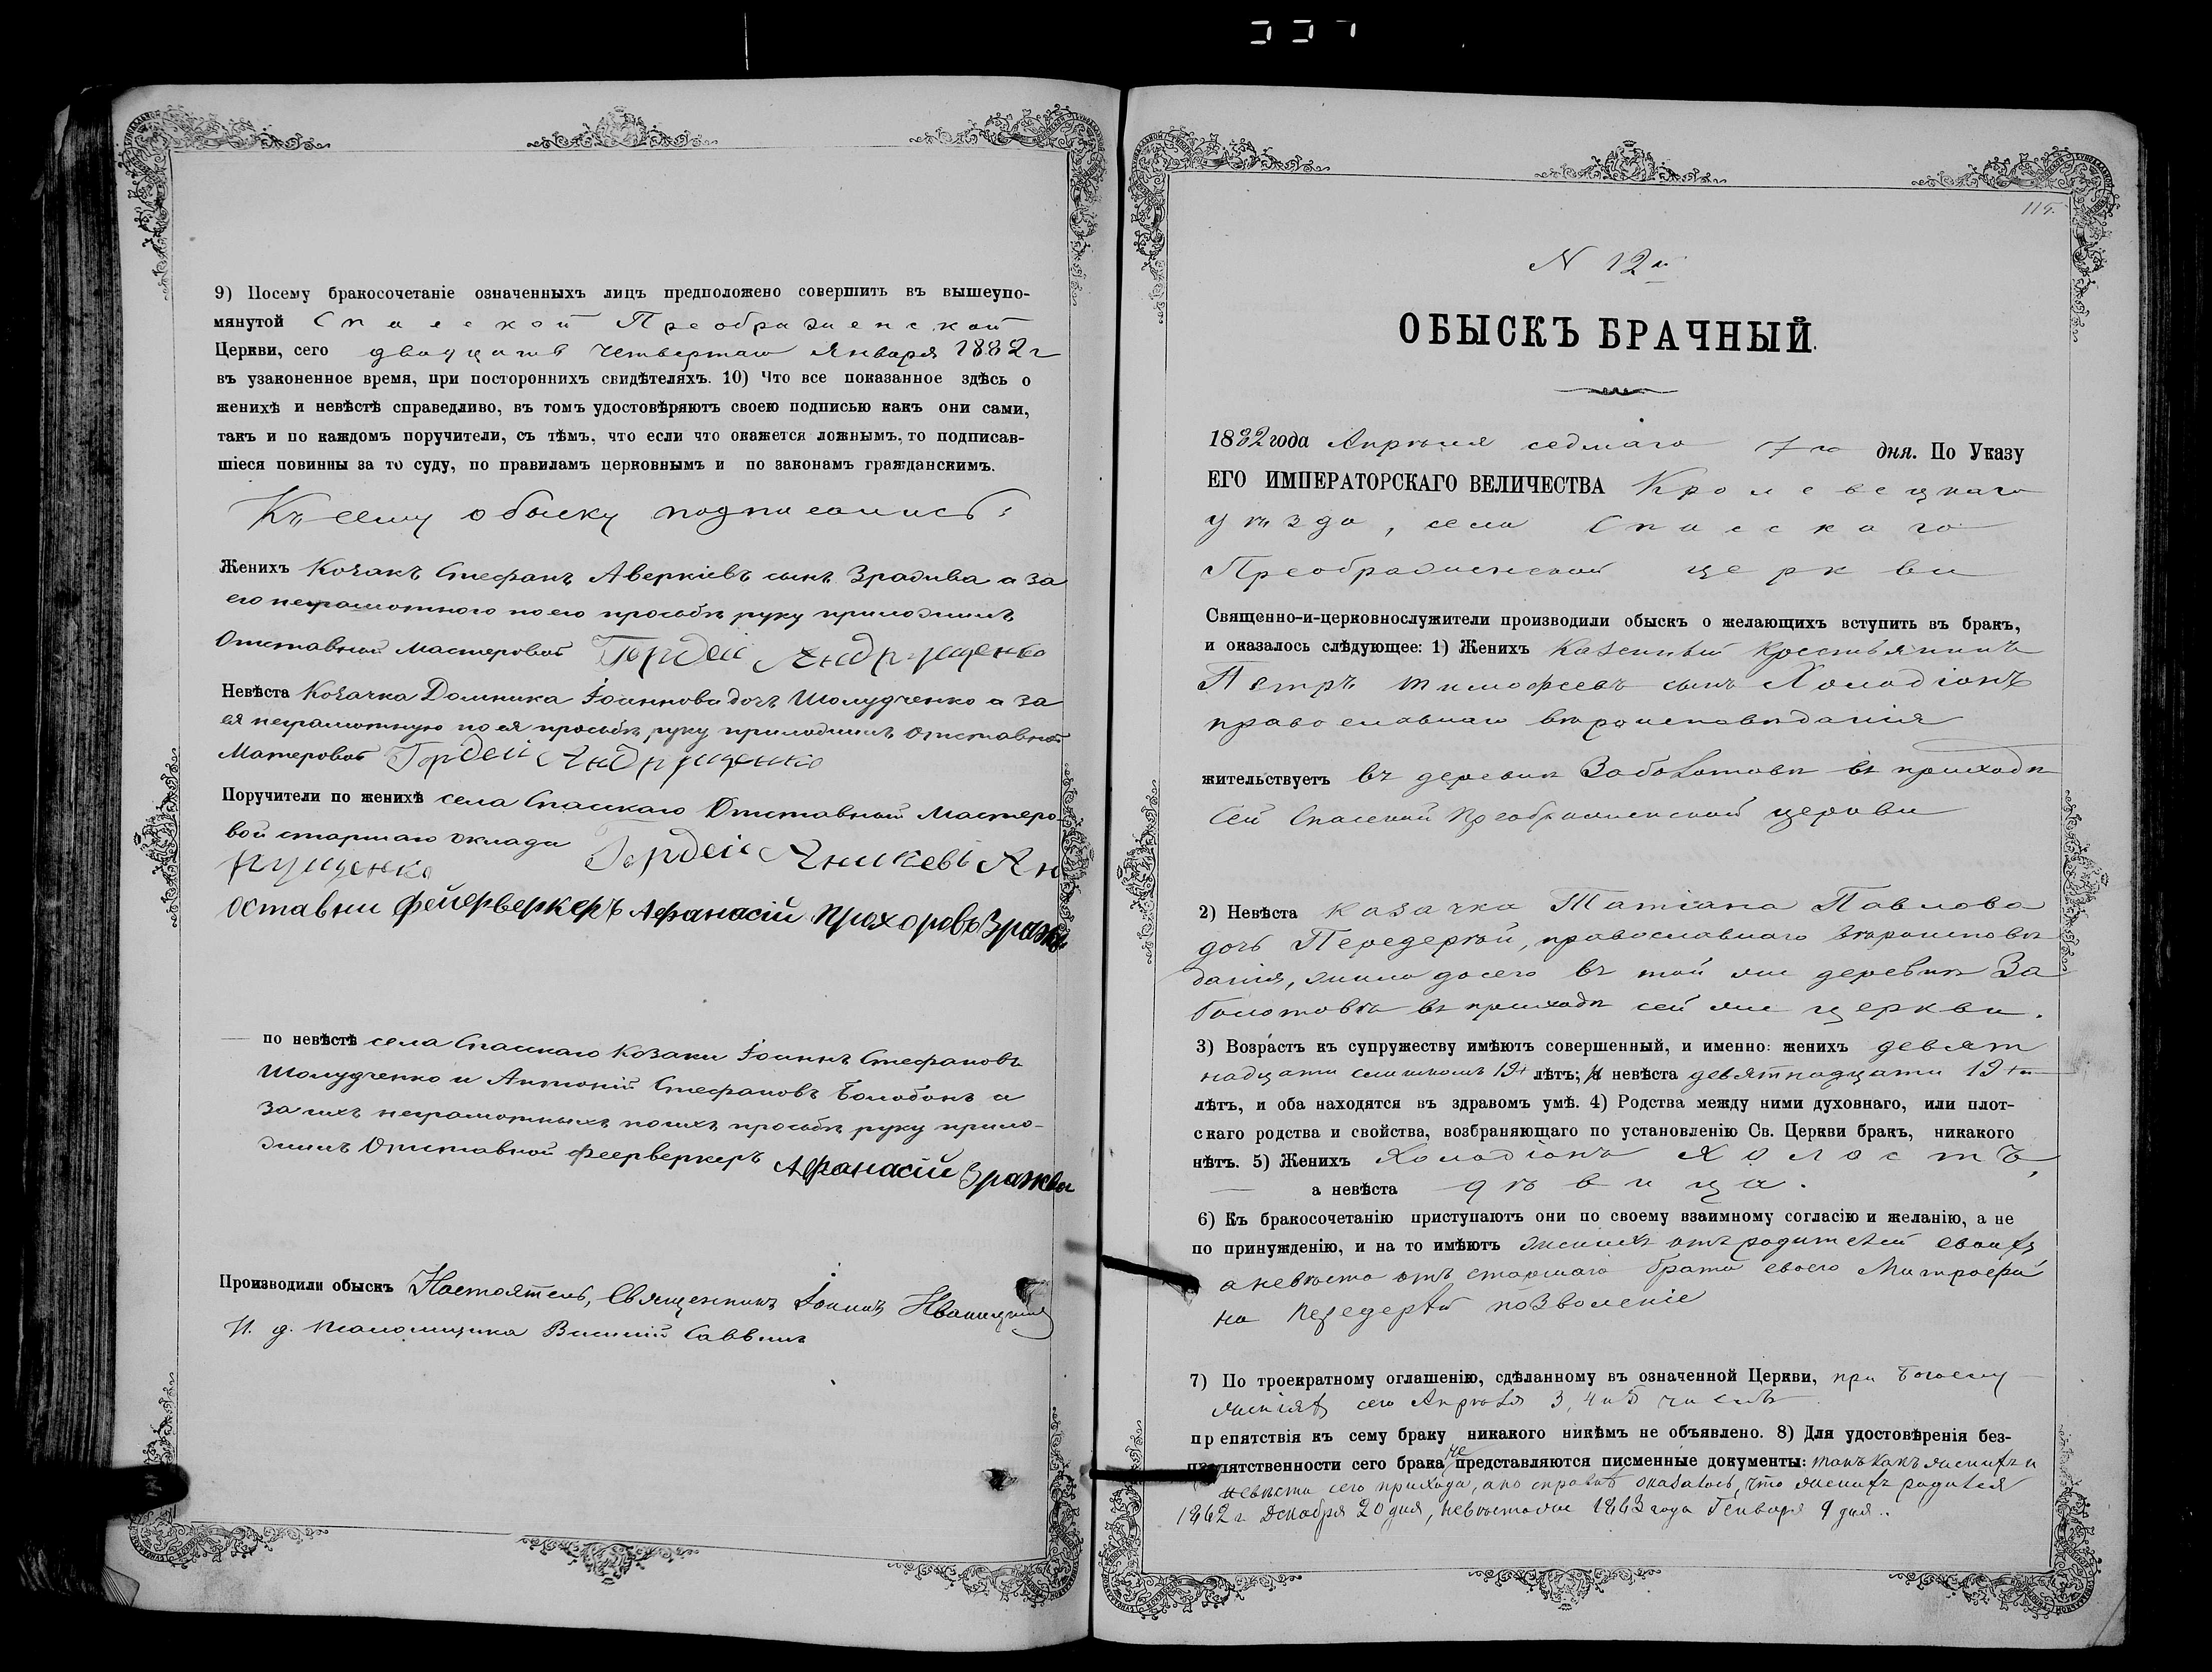 9) Посему бракосочетаніе означенныхъ лицъ предположено совершить въ вышеупо-
мянутой Спасской Преображенской
Церкви, сего двадцать четвертаго января 1882 г
въ узаконенное время, при постороннихъ свидѣтеляхъ. 10) Что все показанное здѣсь о
женихѣ и невѣстѣ справедливо, въ томъ удостовѣряютъ своею подписью какъ они сами,
такъ и по каждомъ поручители, съ тѣмъ, что если что окажется ложнымъ, то подписав-
шіеся повинны за то суду, по правиламъ церковнымъ и по законамъ гражданскимъ.
Къ сему обыску подписались:
Женихъ Козакъ Стефанъ Аверкіевъ сынъ Зражва а за
его неграмотного по его просьбѣ руку приложилъ
Отставной Мастеровой Гордей Андрущенко
Невѣста Козачка Домника Іоаннова дочь Шолудченко а за
ея неграмотную по ея просьбѣ руку приложилъ Отставной
Матеровой Гордей Андрущенко
Поручители по женихѣ села Спасскаго Отставной Мастеро-
вой старшаго оклада Гордей Аникевъ Ан
рущенко
Оставни фейерверкеръ Афанасій Прохоровъ Зражва
по невѣстѣ села Спасскаго Козаки Іоаннъ Стефановъ
Шолудченко и Антоній Стефановъ Болобонъ а
за ихъ неграмотныхъ по ихъ просьбѣ руку прило-
жилъ Отставной Феерверкеръ Афанасій Зражва
Производили обыскъ Настоятель, Священникъ Іоаннъ
И. д. псаломщика Василій Саввинъ
115.
N 12й
ОБЫСКЪ БРАЧНЫЙ.
1882 года Апрѣля седмаго 7го дня. По Указу
ЕГО ИМПЕРАТОРСКАГО ВЕЛИЧЕСТВА Кролевецкаго
уѣзда, села Спасскаго
Преображенской церкви
Священно-и-церковнослужители производили обыскъ о желающихъ вступить въ бракъ,
и оказалось слѣдующее: 1) Женихъ Казенный Крестьянинъ
Петръ Тимофеевъ сынъ Холодіонъ
православнаго вѣроисповѣданія
жительствуетъ въ деревнѣ Заболотовѣ въ приходѣ
сей Спасской Преображенской церкви
2) Невѣста казачка Татіана Павлова
дочь Передерѣй, православнаго вѣроисповѣ
данія, жила до сего въ той же деревнѣ За
болотовѣ въ приходѣ сей же церкви.
3) Возрастъ къ супружеству имѣютъ совершенный, и именно: женихъ девят
надцати слишкомъ 19ти лѣтъ; а невѣста девятнадцати 19ти
лѣтъ, и оба находятся въ здравомъ умѣ. 4) Родства между ними духовнаго, или плот-
скаго родства и свойства, возбраняющаго по установленію Св. Церкви бракъ, никакого
нѣтъ. 5) Женихъ Холодіонъ холостъ,
а невѣста дѣвица.
6) Къ бракосочетанію приступаютъ они по своему взаимному согласію и желанію, а не
по принужденію, и на то имѣютъ женихъ отъ родителей своихъ,
а невѣста отъ старшаго брата своего Митрофа
на Передерѣй позволеніе
7) По троекратному оглашенію, сдѣланному въ означенной Церкви, при Богослу
женіяхъ сего Апрѣля 3, 4 и 5 числъ
препятствія къ сему браку никакого никѣмъ не объявлено. 8) Для удостовѣренія без-
препятственности сего брака не представляются писменные документы: такъ какъ женихъ и
невѣста сего прихода, а по справкѣ оказалось, что женихъ родился
1862 г. Декабря 20 дня, невѣста же 1863 года Генваря 9 дня..